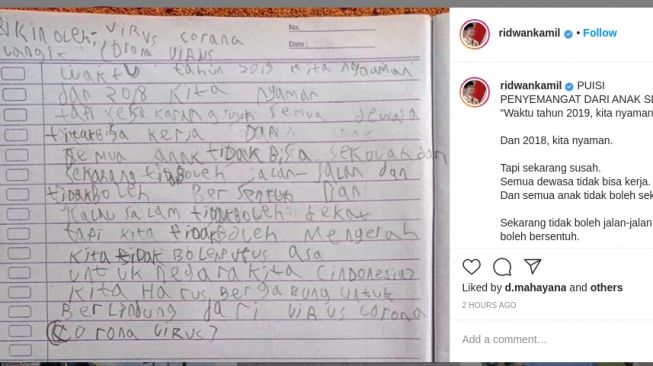 Bikin oleh: Virus corona
langit (Drom ViRUS
No.
Date:
waktu tahun 2019 kita nyaman
dan 2018 kita nyaman
tapi sekarang susah semua dewasa
tidak bisa kerja Dan
Semua anak tidak Bisa sekolah dan
Sekarang tidak boleh jalan-jalan dan
tidak boleh Bersentuh Dan
Kalau salam tidak boleh dekat
tapi kita tidak Boleh Mengeluh
Kita tidak Bole Putus asa
untuk negara kita (indonesia)
Kita Harus Bergabung untuk
Berlindung dari ViRus corona
(Corona ViRUS)
ridwankamil • Follow
ridwankamil PUISI
PENYEMANGAT DARI ANAK
“Waktu tahun 2019, kita nyaman
Dan 2018, kita nyaman.
Tapi sekarang susah.
Semua dewasa tidak bisa kerja.
Dan semua anak tidak boleh
Sekarang tidak boleh jalan-jalan
boleh bersentuh.
Liked by d.mahayana and others
2 HOURS AGO
Add a comment...